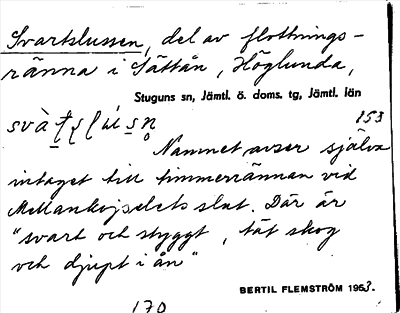 Svartslussen, del av flottnings-
ränna i Sättån, Höglunda,
Stuguns sn, Jämtl. ö. doms. tg, Jämtl. län
153
Namnet avser själva
intaget till timmerrännan vid
slut. Där är
"svart och styggt, tät skog
och djupt i ån"
BERTIL FLEMSTRÖM 1953.
170